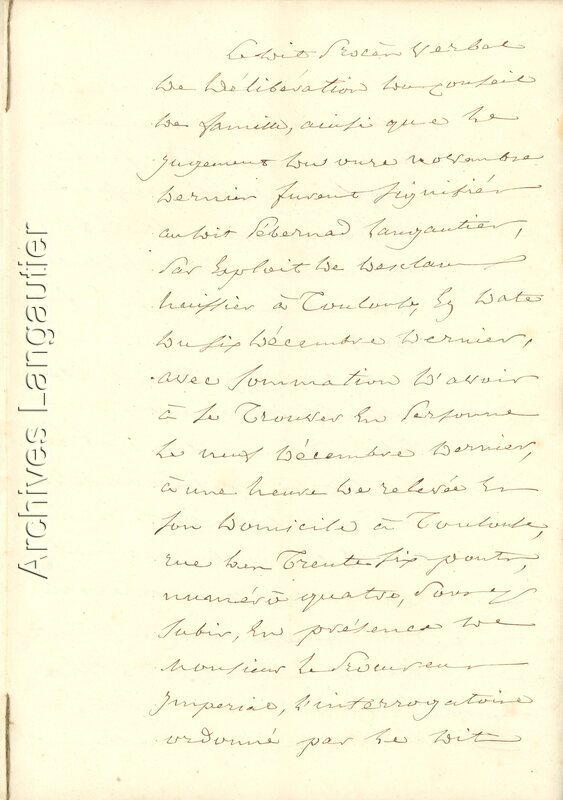 Le dit Procès Verbal
de délibération du conseil
de famille, ainsi que le
jugement du onze novembre
dernier furent signifiés
au dit Pébernad Langautier,
par Exploit de Desclaux
huissier à Toulouse, En date
du six décembre dernier,
avec sommation d'avoir
à se Trouver En Personne
le neuf décembre dernier,
à une heure de relevée En
son domicile à Toulouse,
rue des Trente six ponts,
numéro quatre, pour y
subir, En présence de
Monsieur le Procureur
Impérial, l'interrogatoire
ordonné par le dit
Archives Langautier